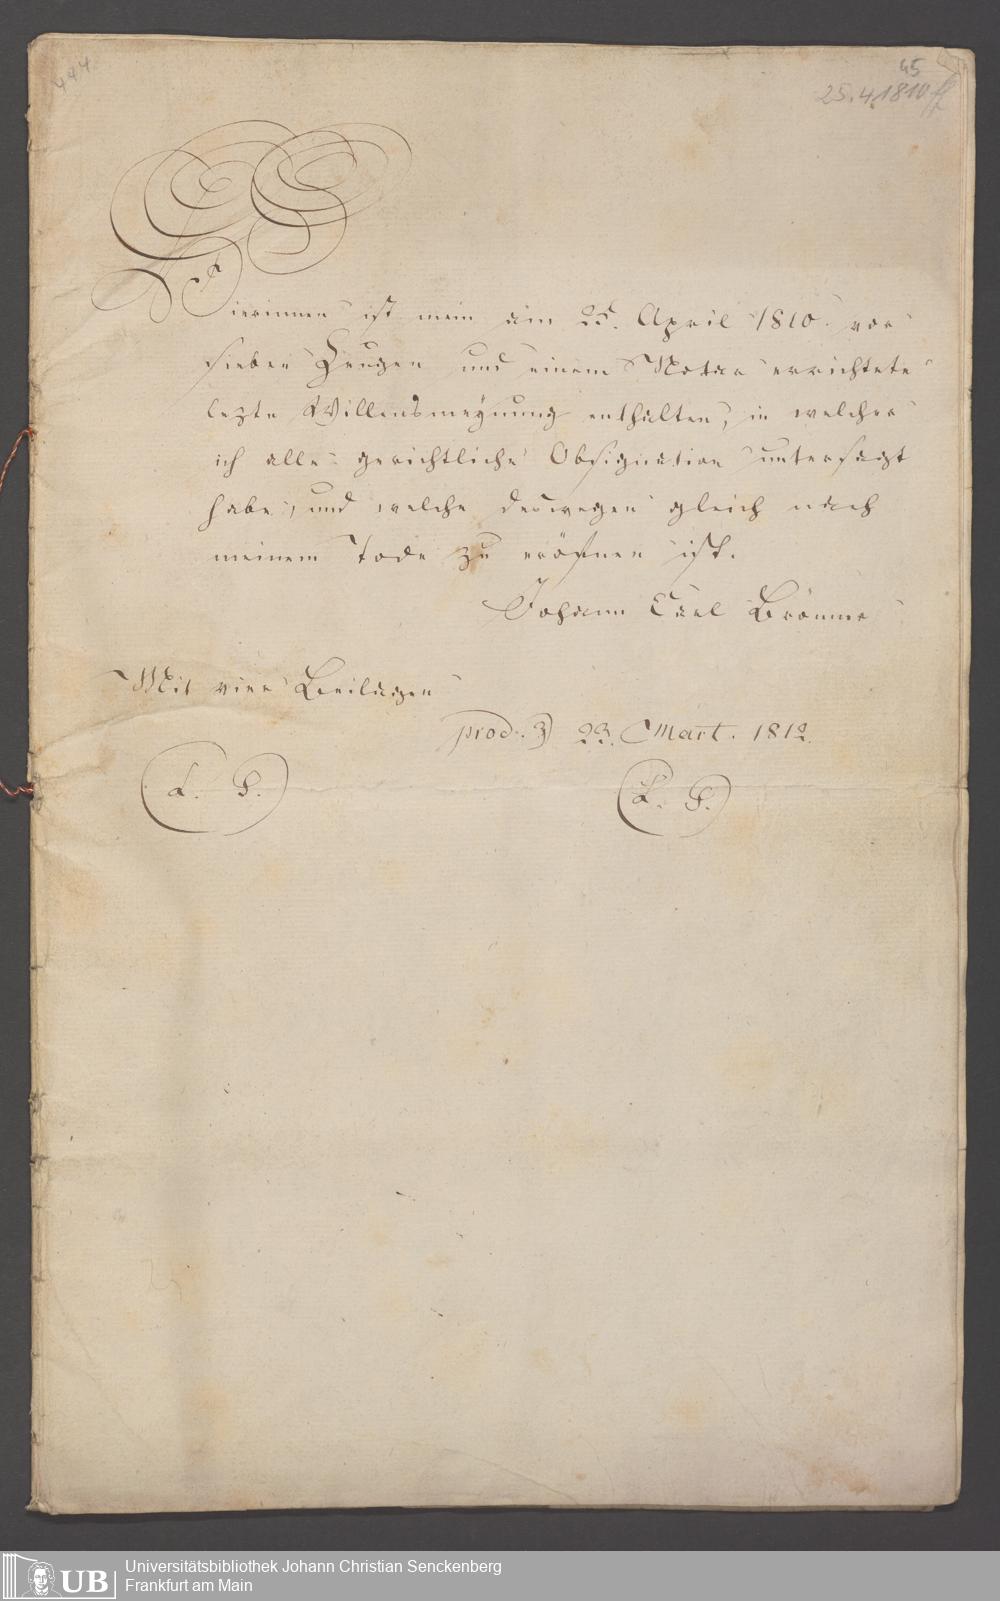 444.
45
25.4.1810 ff
Hierinnen ist mein am 25t. April 1810. vor
sieben Zeugen und einem Notar errichtete
lezte Willensmeÿnung enthalten, in welcher
ich alle gerichtliche Obsignation untersagt
habe, und welche deswegen gleich nach
meinem Tode zu eröfnen ist.
Johann Carl Brönner
Mit vier Beilagen
prod. 23. Mart. 1812.
L. S. L. S.
UB Universitätsbibliothek Johann Christian Senckenberg
Frankfurt am Main